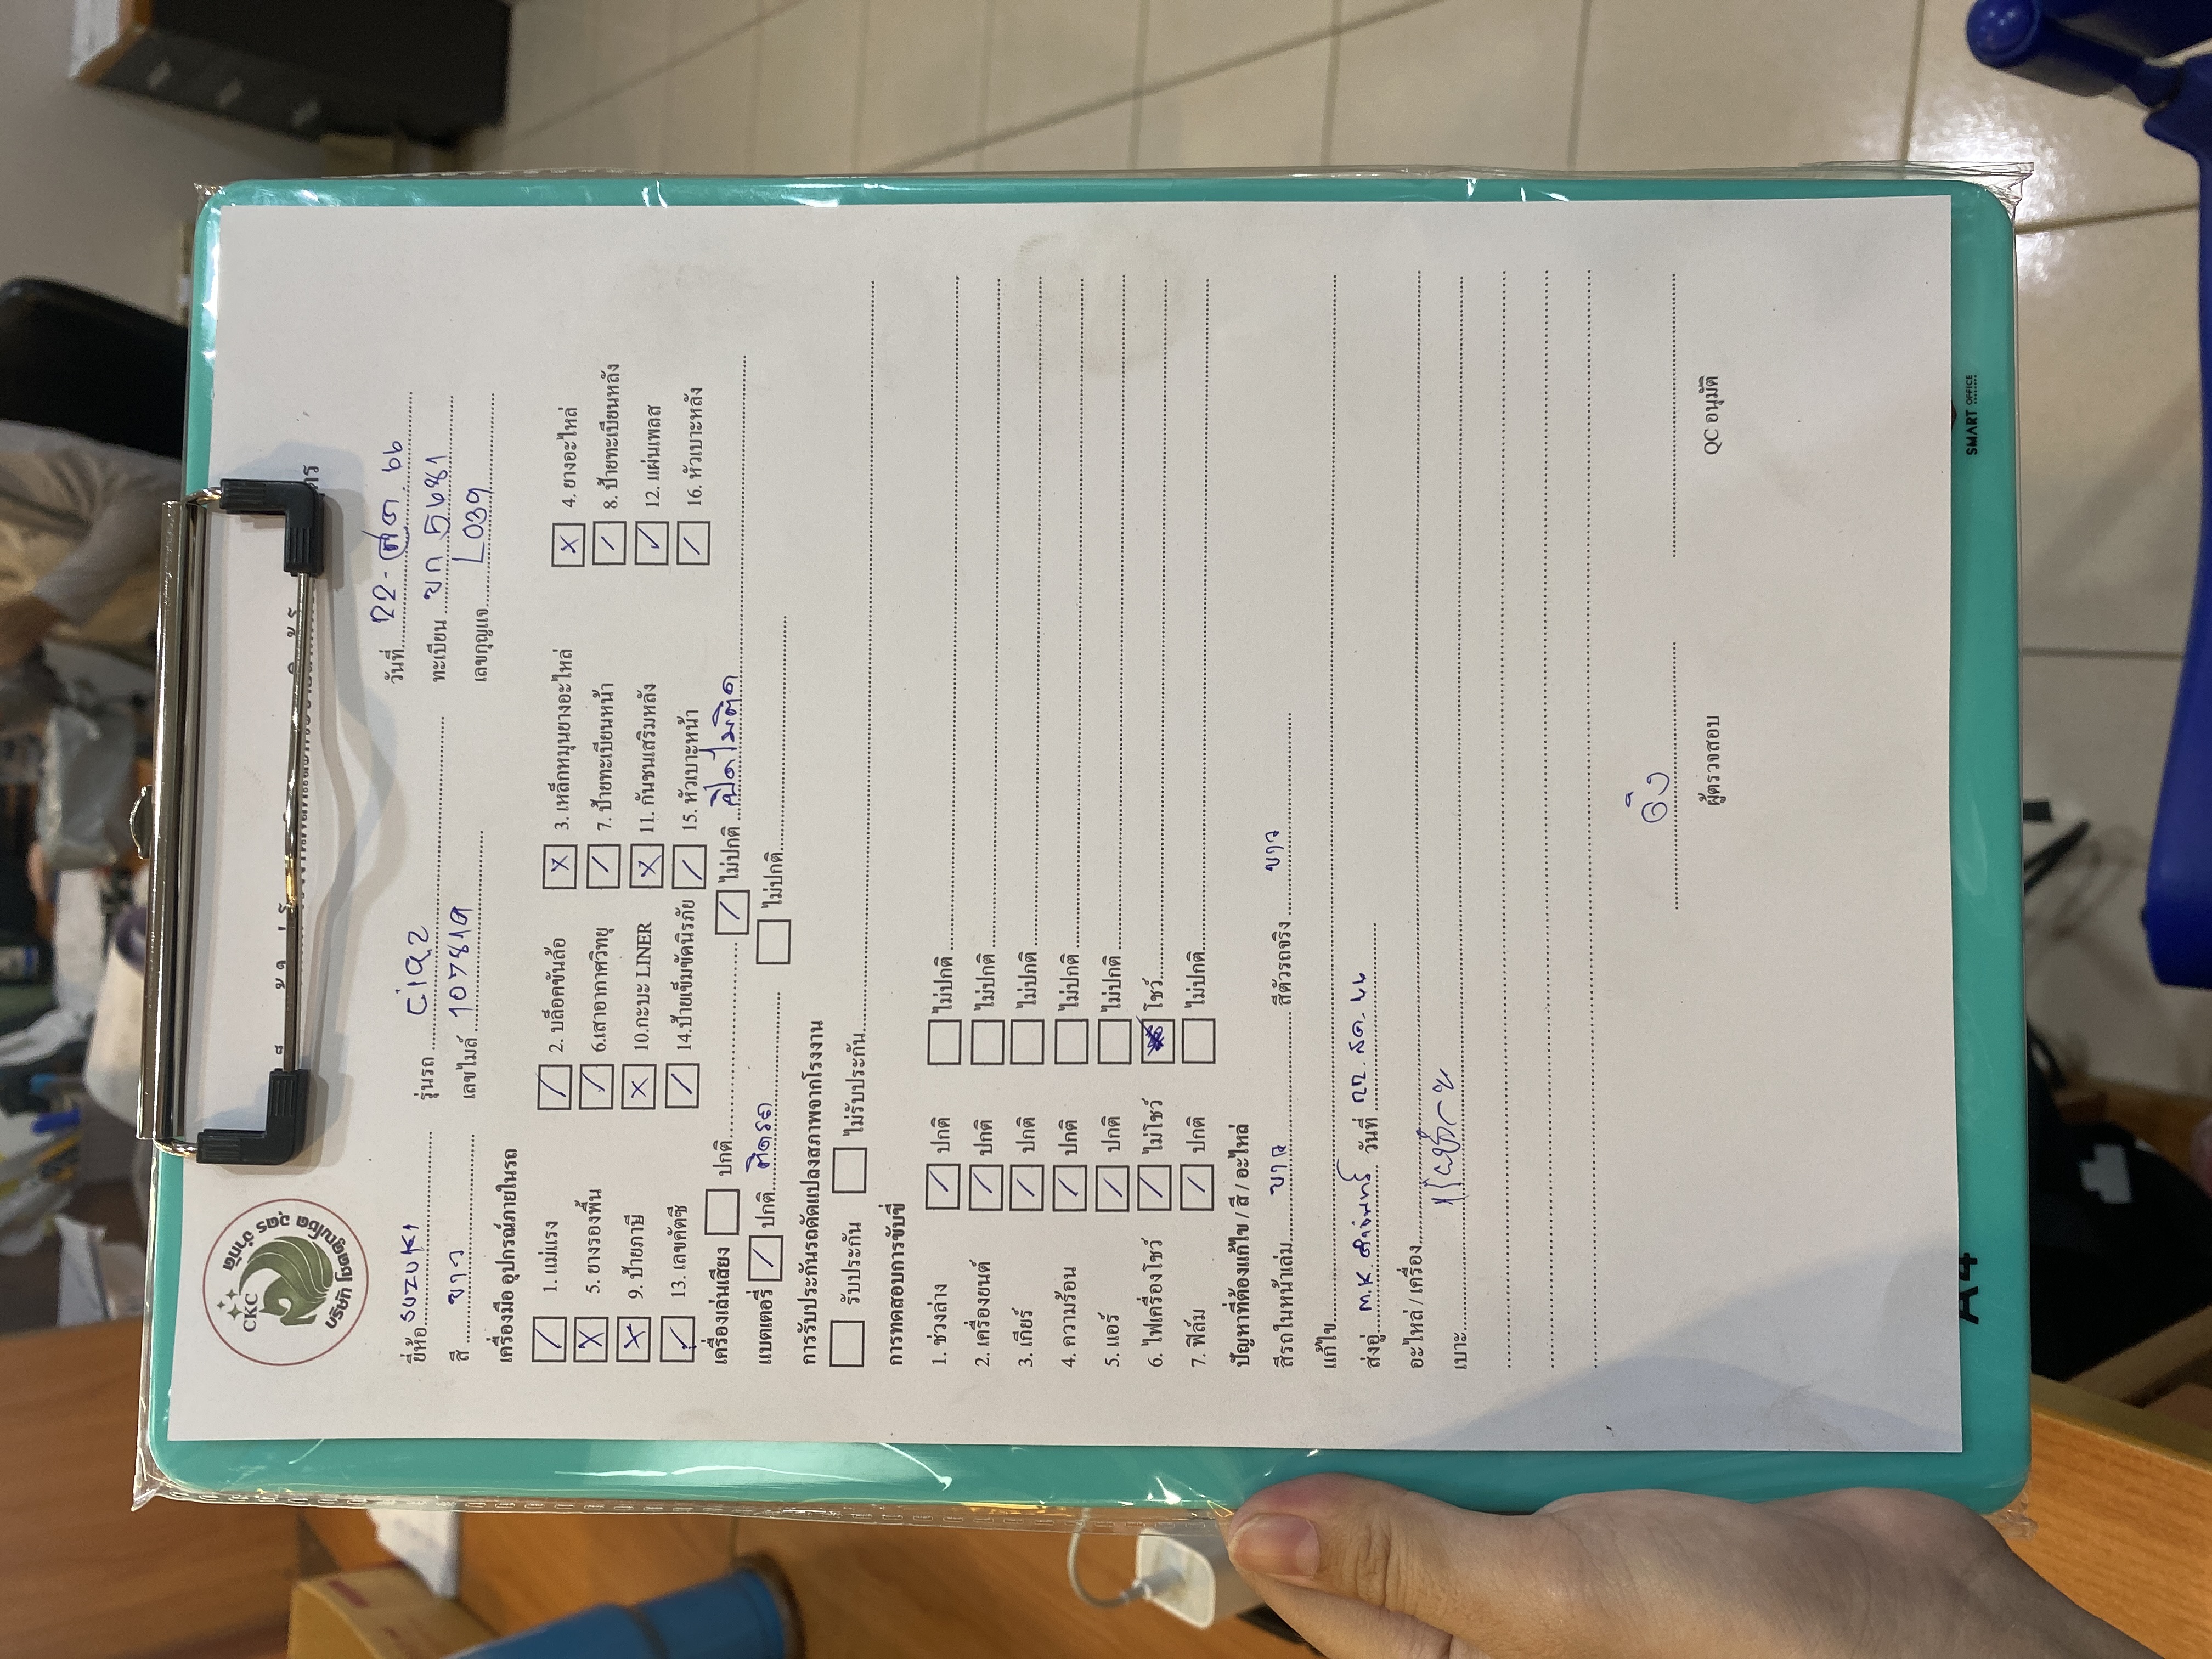 CKC
บริษัท ชัยคูณโชค
จำกัด
วันที่ 22-สค. 66
ยี่ห้อ SUZUKI รุ่นรถ Ciaz ทะเบียน ขก 5681
สี ขาว เลขไมล์ เลขกุญแจ L039
เครื่องมือ อุปกรณ์ภายในรถ
/ 1. แม่แรง / 2. บล็อคขันล้อ x 3. เหล็กหมุนยางอะไหล่ x 4. ยางอะไหล่
x 5. ยางรองพื้น / 6.เสาอากาศวิทยุ / 7. ป้ายทะเบียนหน้า / 8. ป้ายทะเบียนหลัง
x 9. ป้ายภาษี x 10.กะบะ LINER x 11. กันชนเสริมหลัง ✓ 12. แผ่นเพลส
✓ 13. เลขคัตซี / 14.ป้ายเข็มขัดนิรภัย / 15. หัวเบาะหน้า / 16. หัวเบาะหลัง
เครื่องเล่นเสียง ปกติ / ไม่ปกติ เปิดไม่ติด
แบตเตอรี่ / ปกติ ติดรถ ไม่ปกติ
การรับประกันรถดัดแปลงสภาพจากโรงงาน
รับประกัน ไม่รับประกัน
การทดสอบการขับขี่
1. ช่วงล่าง / ปกติ ไม่ปกติ
2. เครื่องยนต์ / ปกติ ไม่ปกติ
3. เกียร์ / ปกติ ไม่ปกติ
4. ความร้อน / ปกติ ไม่ปกติ
5. แอร์ / ปกติ ไม่ปกติ
6. ไฟเครื่องโชว์ / ไม่โชว์ โชว์
7. ฟิล์ม / ปกติ ไม่ปกติ
ปัญหาที่ต้องแก้ไข / สี / อะไหล่
สีรถในหน้าเล่ม ขาว สีตัวรถจริง ขาว
แก้ไข
ส่งอู่ M.K วันที่ 22. สค. 66
อะไหล่ / เครื่อง
เบาะ
ผู้ตรวจสอบ QC อนุมัติ
A4
SMART OFFICE